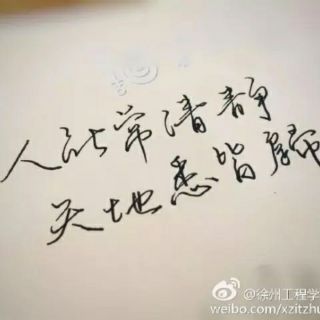 人能常清静
天地悉皆归
@徐州工程学
weibo.com/xzitzhu